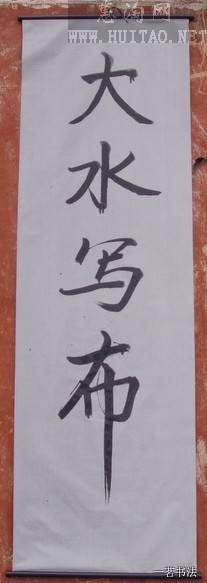 惠淘网
WWW.HUITAO.NET
大水写布
一茗书法